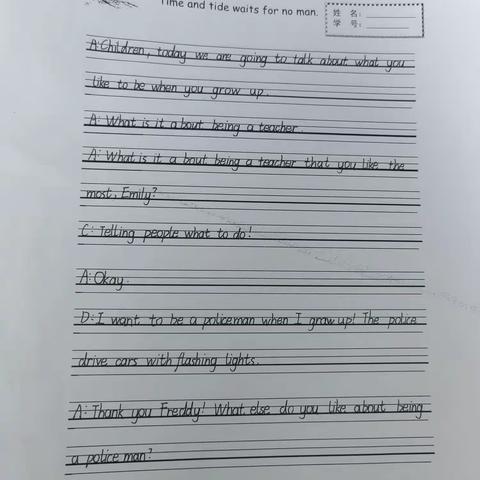 Time and tide waits for no man.
姓 名:
学 号:
A:Children, today we are going to talk about what you
like to be when you grow up.
A: What is it about being a teacher.
A: What is it a bout being a teacher that you like the
most, Emily?
C: Telling people what to do!
A: Okay.
D: I want to be a policeman when I grow up! The police
drive cars with flashing lights.
A: Thank you Freddy! What else do you like about being
a police man?